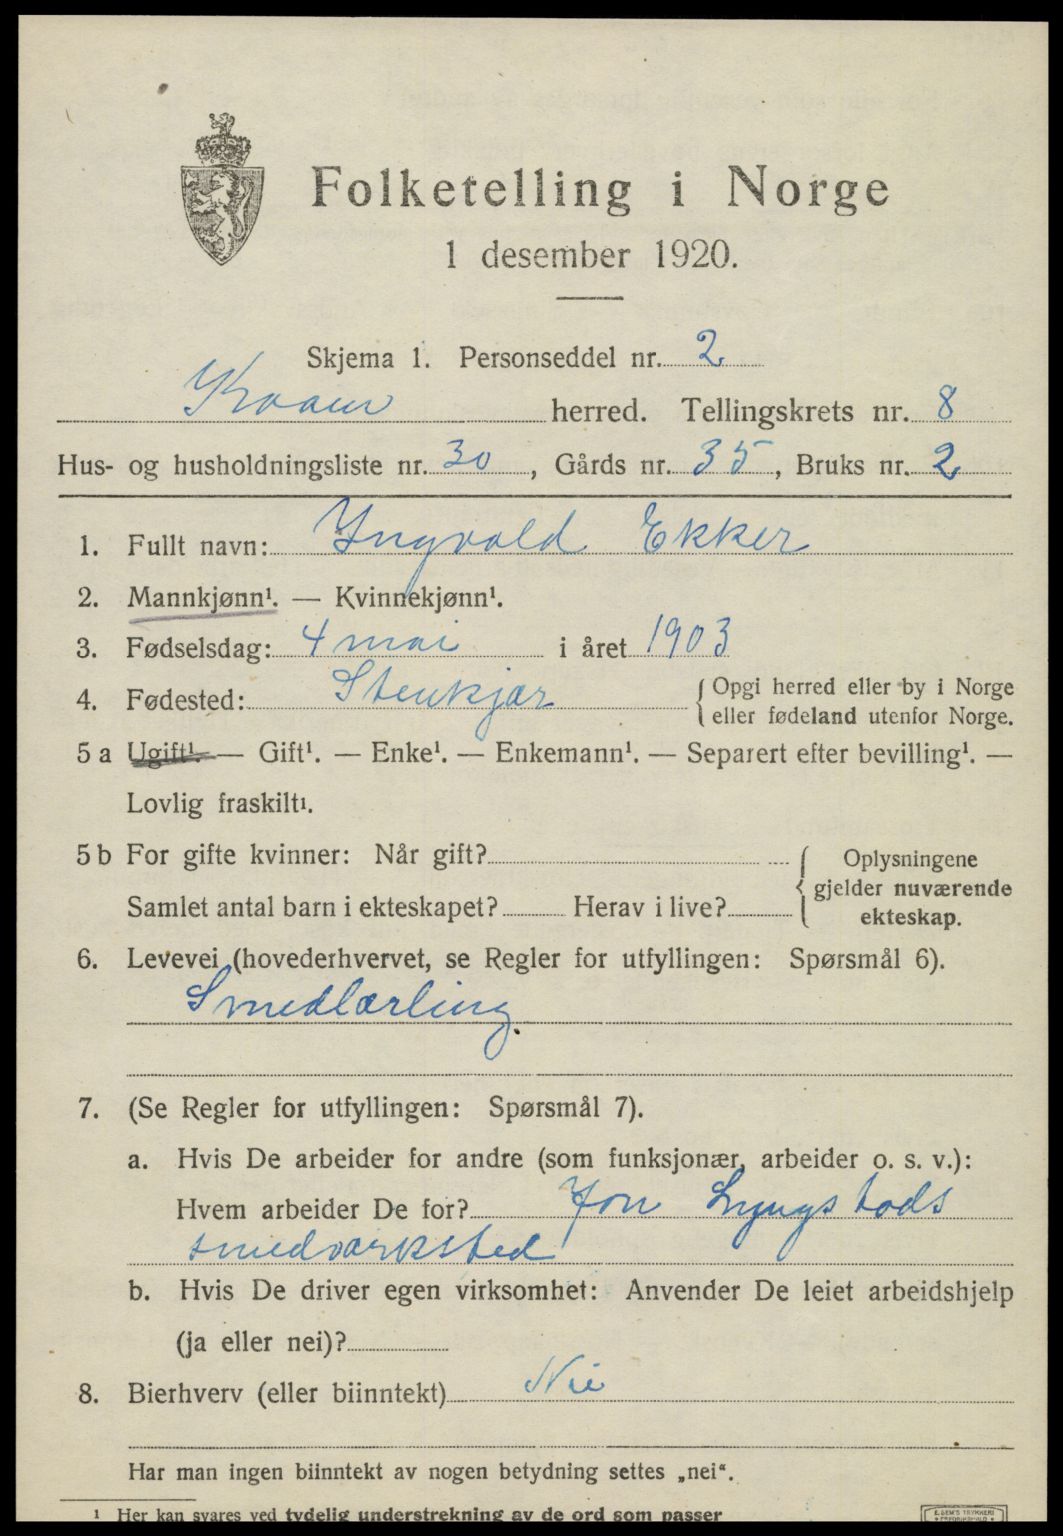 Folketelling i Norge
1 desember 1920.
Skjema 1. Personseddel nr. 2
Kvam herred. Tellingskrets nr. 8
Hus- og husholdningsliste nr. 30, Gårds nr. 35, Bruks nr. 2
1. Fullt navn: Yngvald Ekker
2. Mannkjønn¹. — Kvinnekjønn¹.
3. Fødselsdag: 4 mai i året 1903
4. Fødested: Stenkjær { Opgi herred eller by i Norge
eller fødeland utenfor Norge.
5 a Ugift¹. — Gift¹. — Enke¹. — Enkemann¹. — Separert efter bevilling¹. —
Lovlig fraskilt¹.
5 b For gifte kvinner: Når gift? { Oplysningene
gjelder nuværende
Samlet antal barn i ekteskapet? Herav i live? ekteskap.
6. Levevei (hovederhvervet, se Regler for utfyllingen: Spørsmål 6).
Smedlærling.
7. (Se Regler for utfyllingen: Spørsmål 7).
a. Hvis De arbeider for andre (som funksjonær, arbeider o. s. v.):
Hvem arbeider De for? Jon Lyngstads
smedværksted
b. Hvis De driver egen virksomhet: Anvender De leiet arbeidshjelp
(ja eller nei)?
8. Bierhverv (eller biinntekt) Nei
Har man ingen biinntekt av nogen betydning settes „nei“.
¹ Her kan svares ved tydelig understrekning av de ord som passer